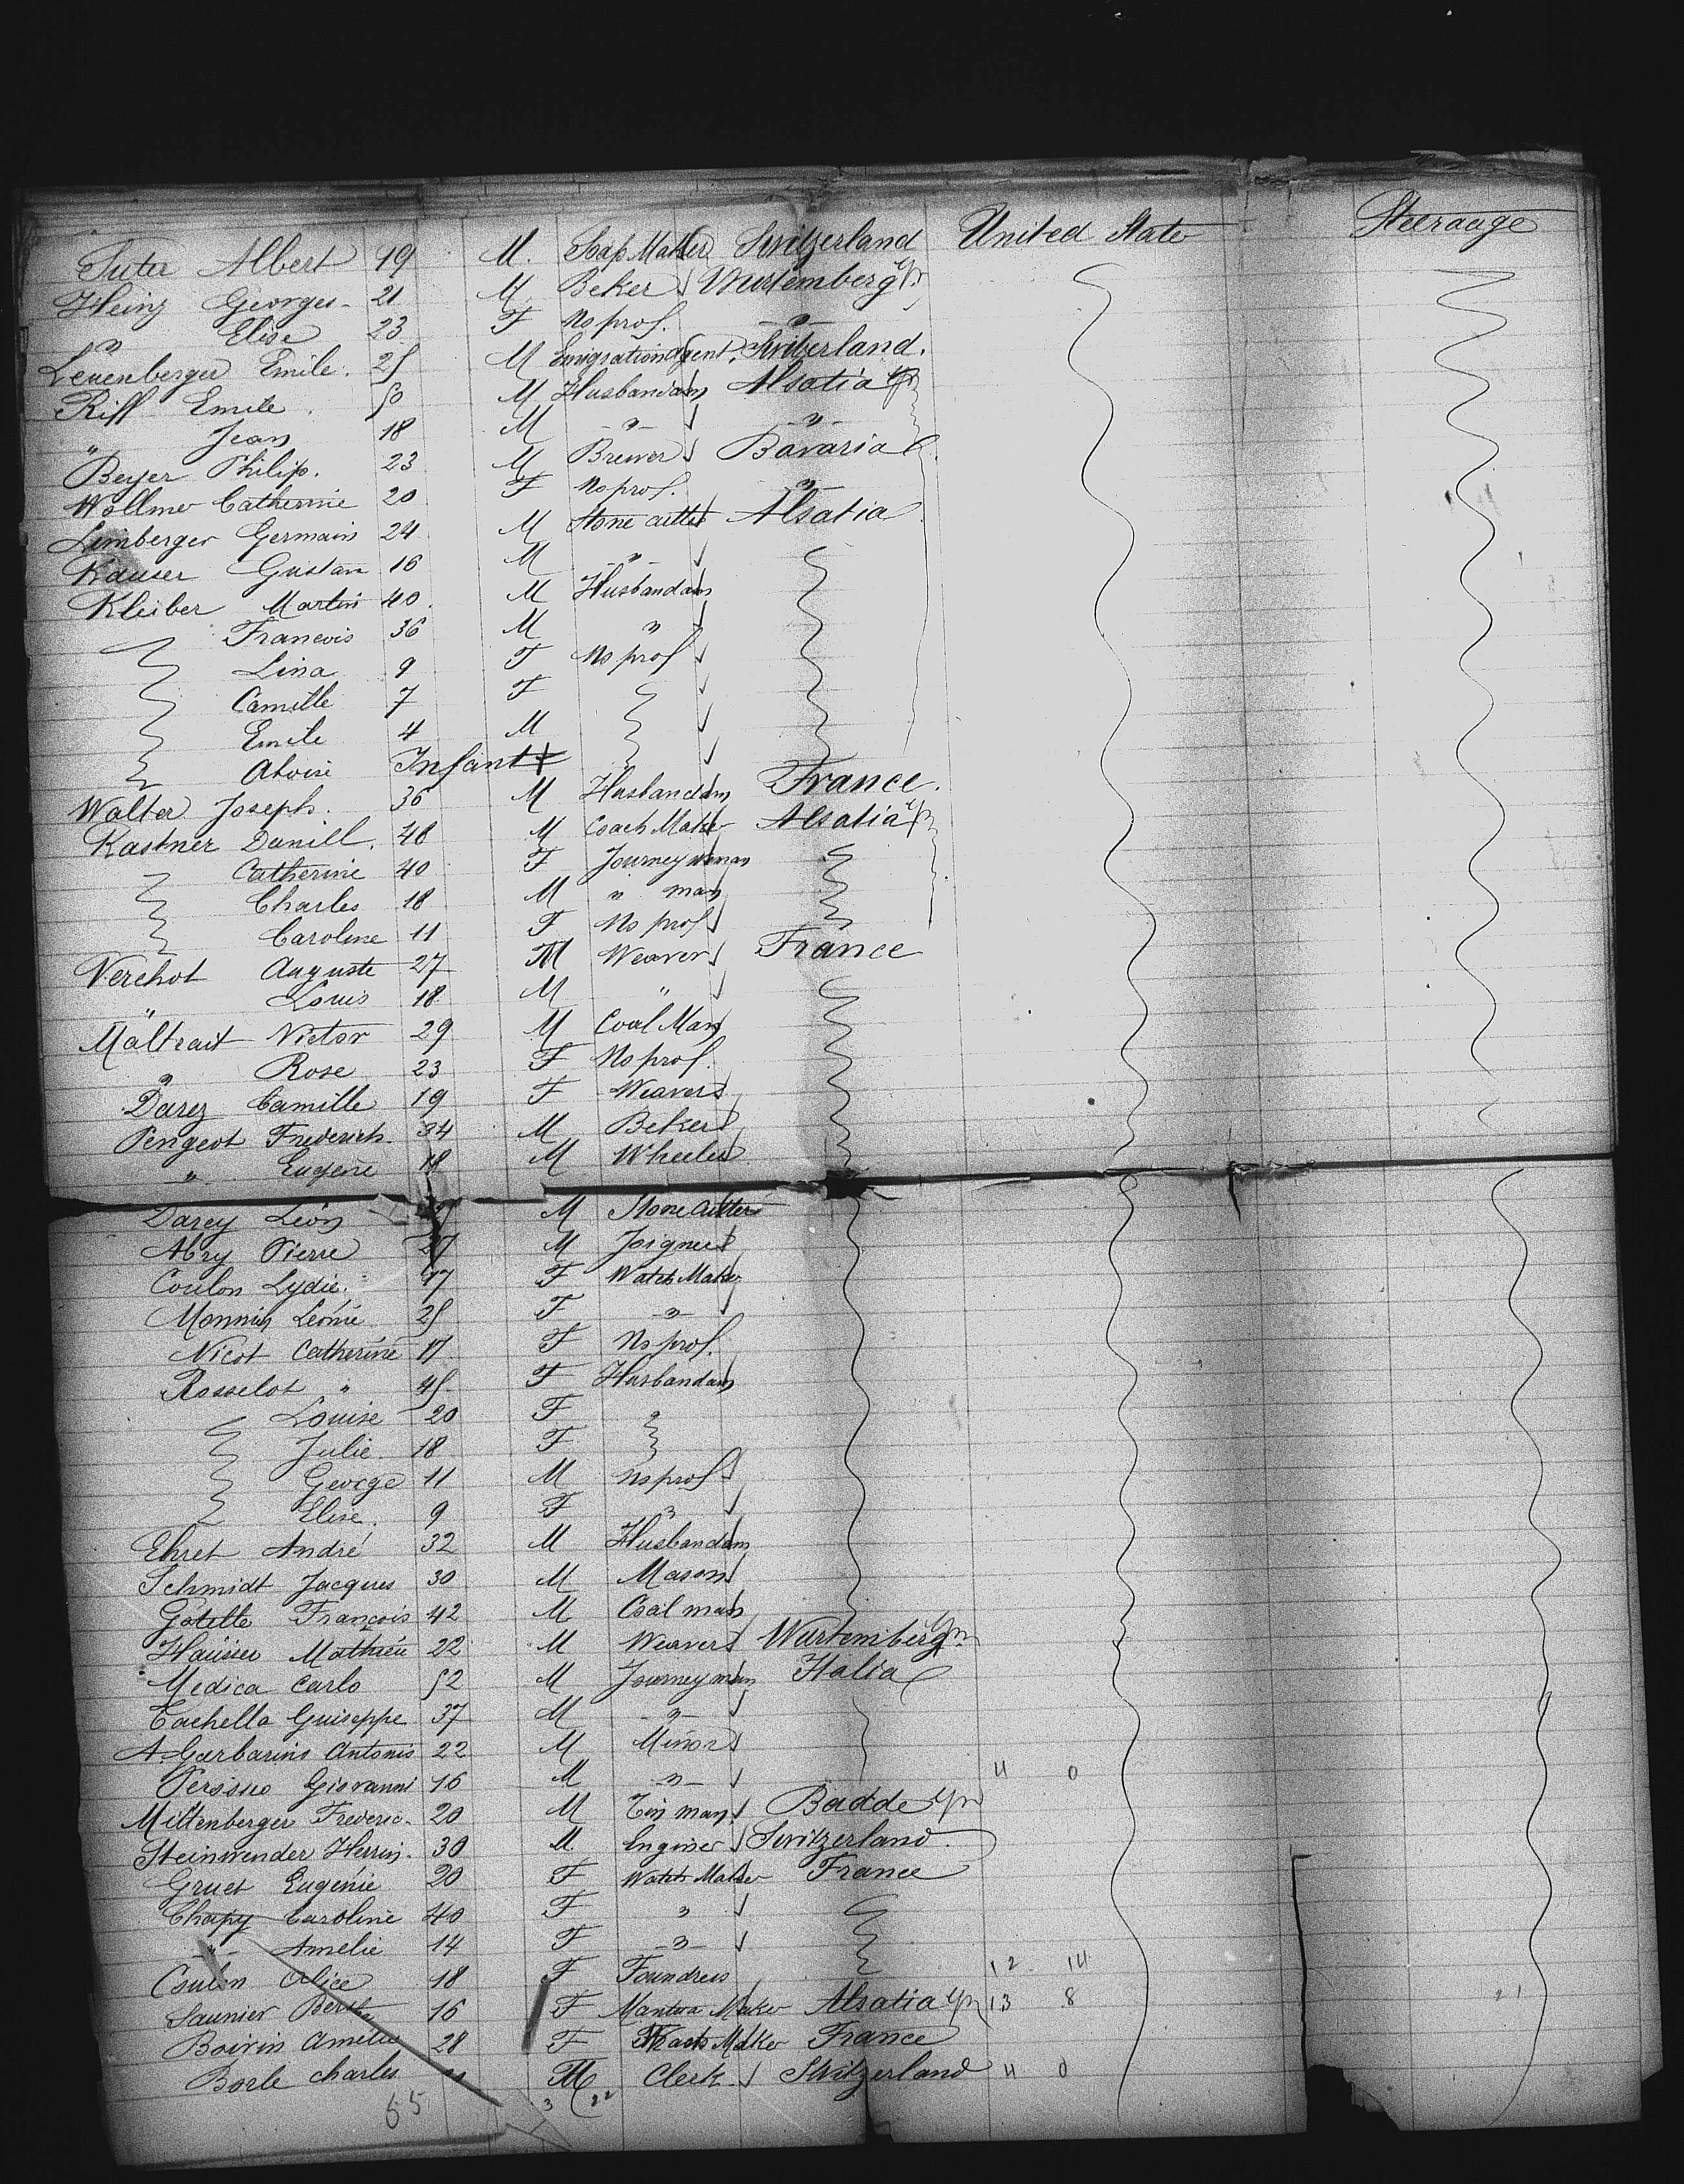 Suter Albert 19 M. Soap Maker Switzerland United State Steeraage
Heinz Georges 21 M Beker Wurtemberg
" Elise 23 F No prof. "
Leuenberger Emile. 25 M Emigration agent. Switzerland.
Riff Emile. 50 M Husbandam Alsatia
" Jean 18 M " "
Beyer Philip. 23 M Brewer Bavaria
Wollmer Catherine 20 F No prof. "
Limberger Germain 24 M Stone cutter Alsatia
Kauser Gustav 16 M "
Kleiber Martin 40 M Husbandam
Francois 36 M "
Lina 9 F No prof
Camille 7 F
Emile 4 M
Aloise Infant
Walter Joseph. 36 M Husbandam France.
Kastner Daniell. 48 M Coach Maker Alsatia
Catherine 40 F Journey woman
Charles 18 M " man
Caroline 11 F No prof
Verchot Auguste 27 M Weaver France
" Louis 18 M "
Maltrait Victor 29 M Coal Man
" Rose 23 F No prof.
Darez Camille 19 F Weaver
Pengeot Frederich. 34 M Beker
" Eugene 18 M Wheeler
Darey Léon M Stone Cutter
Abry Pierre 27 M Joigner
Coulon Lydie. 17 F Watch Maker
Monnin Léonie 25 F "
Nicot Catherine 17 F No prof.
Rosselot " 45 F Husbandam
Louise 20 F
Julie 18 F
George 11 M No prof
Elise. 9 F "
Ehret André 32 M Husbandam
Schmidt Jacques 30 M Mason
Gotelle François 42 M Coal man
Haüsser Mathieu 22 M Weaver Wurtemberg
Medica Carlo 52 M Journey man Italia
Cachella Guiseppe 37 M "
A. Garbarino Antonio 22 M Minor
Giovanni 16 M " 11 0
Mittenberger Frederic. 20 M Tin man. Badde
Steinwender Herrin. 30 M. Enginer Switzerland
Gruet Eugénie 20 F Watch Maker France
Chapy Caroline 40 F "
" Amelie 14 F "
Coulon Alice 18 F Foundress 12 14
Saunier Berthe 16 F Mantua Maker Alsatia 13 8 21
Boivin Amélie 28 F Watch Maker France
Borle charles M Clerk Switzerland 11 0
65 3 22